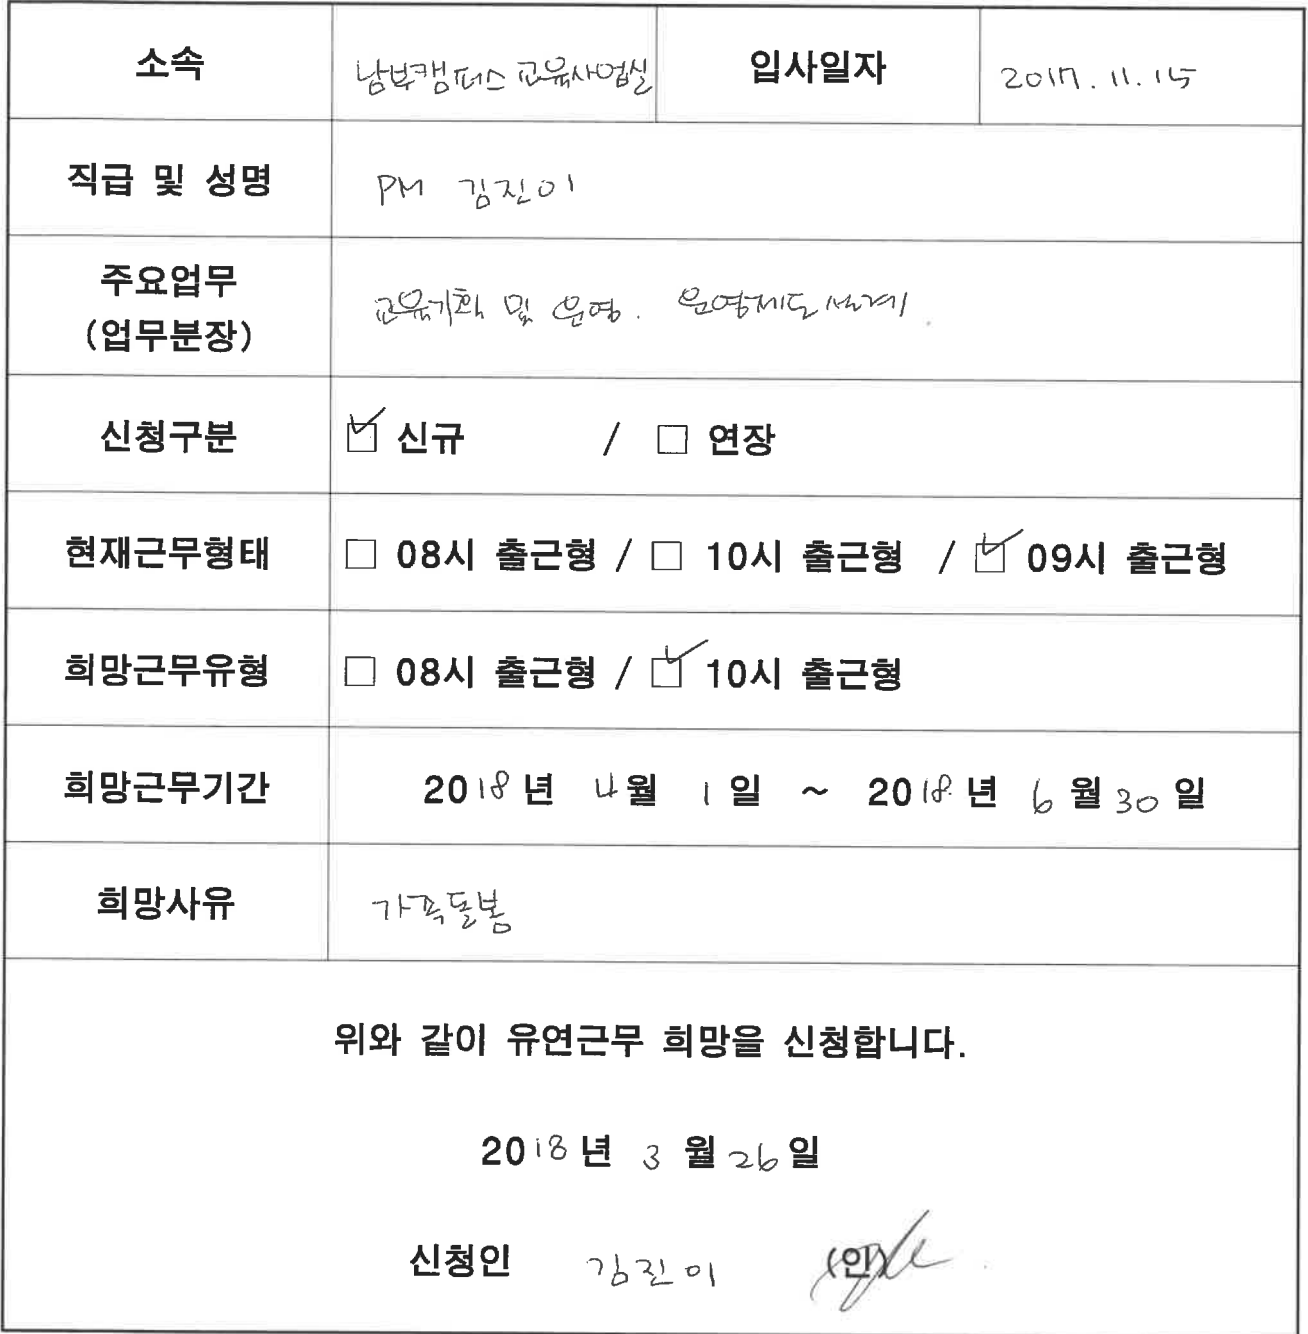 소속 남부캠퍼스 교육사업실 입사일자 2017. 11. 15
직급 및 성명 PM 김진이
주요업무
(업무분장) 교육기획 및 운영. 운영제도 설계.
신청구분 ☑ 신규 / □ 연장
현재근무형태 □ 08시 출근형 / □ 10시 출근형 / ☑ 09시 출근형
희망근무유형 □ 08시 출근형 / ☑ 10시 출근형
희망근무기간 2018년 4월 1일 ~ 2018년 6월 30일
희망사유 가족돌봄
위와 같이 유연근무 희망을 신청합니다.
2018년 3월 26일
신청인 김진이 (인)